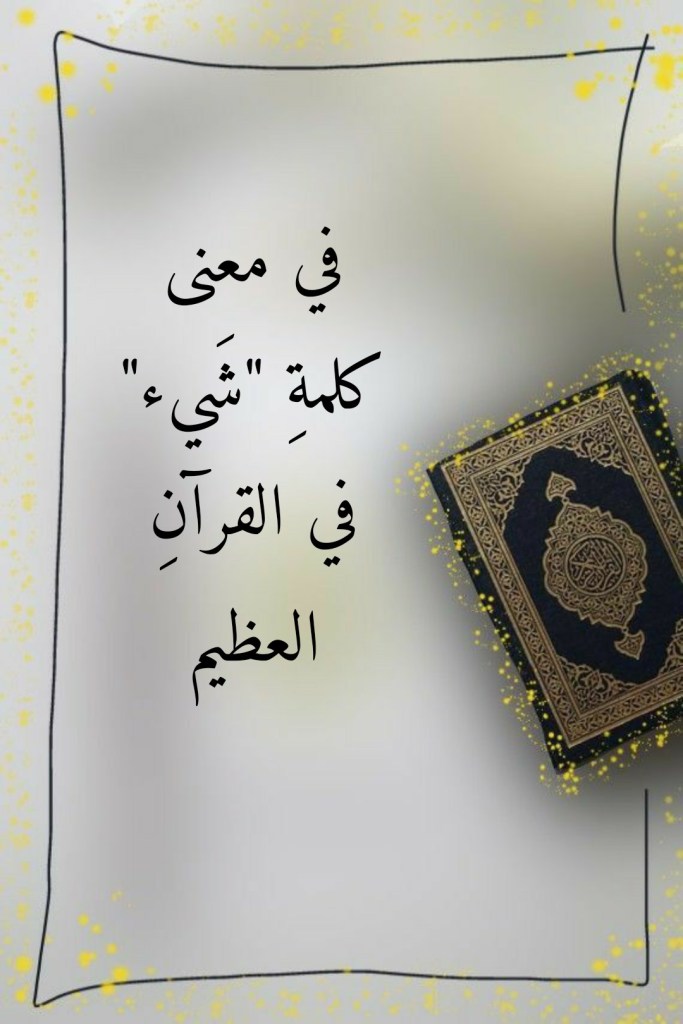 في معنى
كلمةِ "شَيء"
في القرآنِ
العظيم